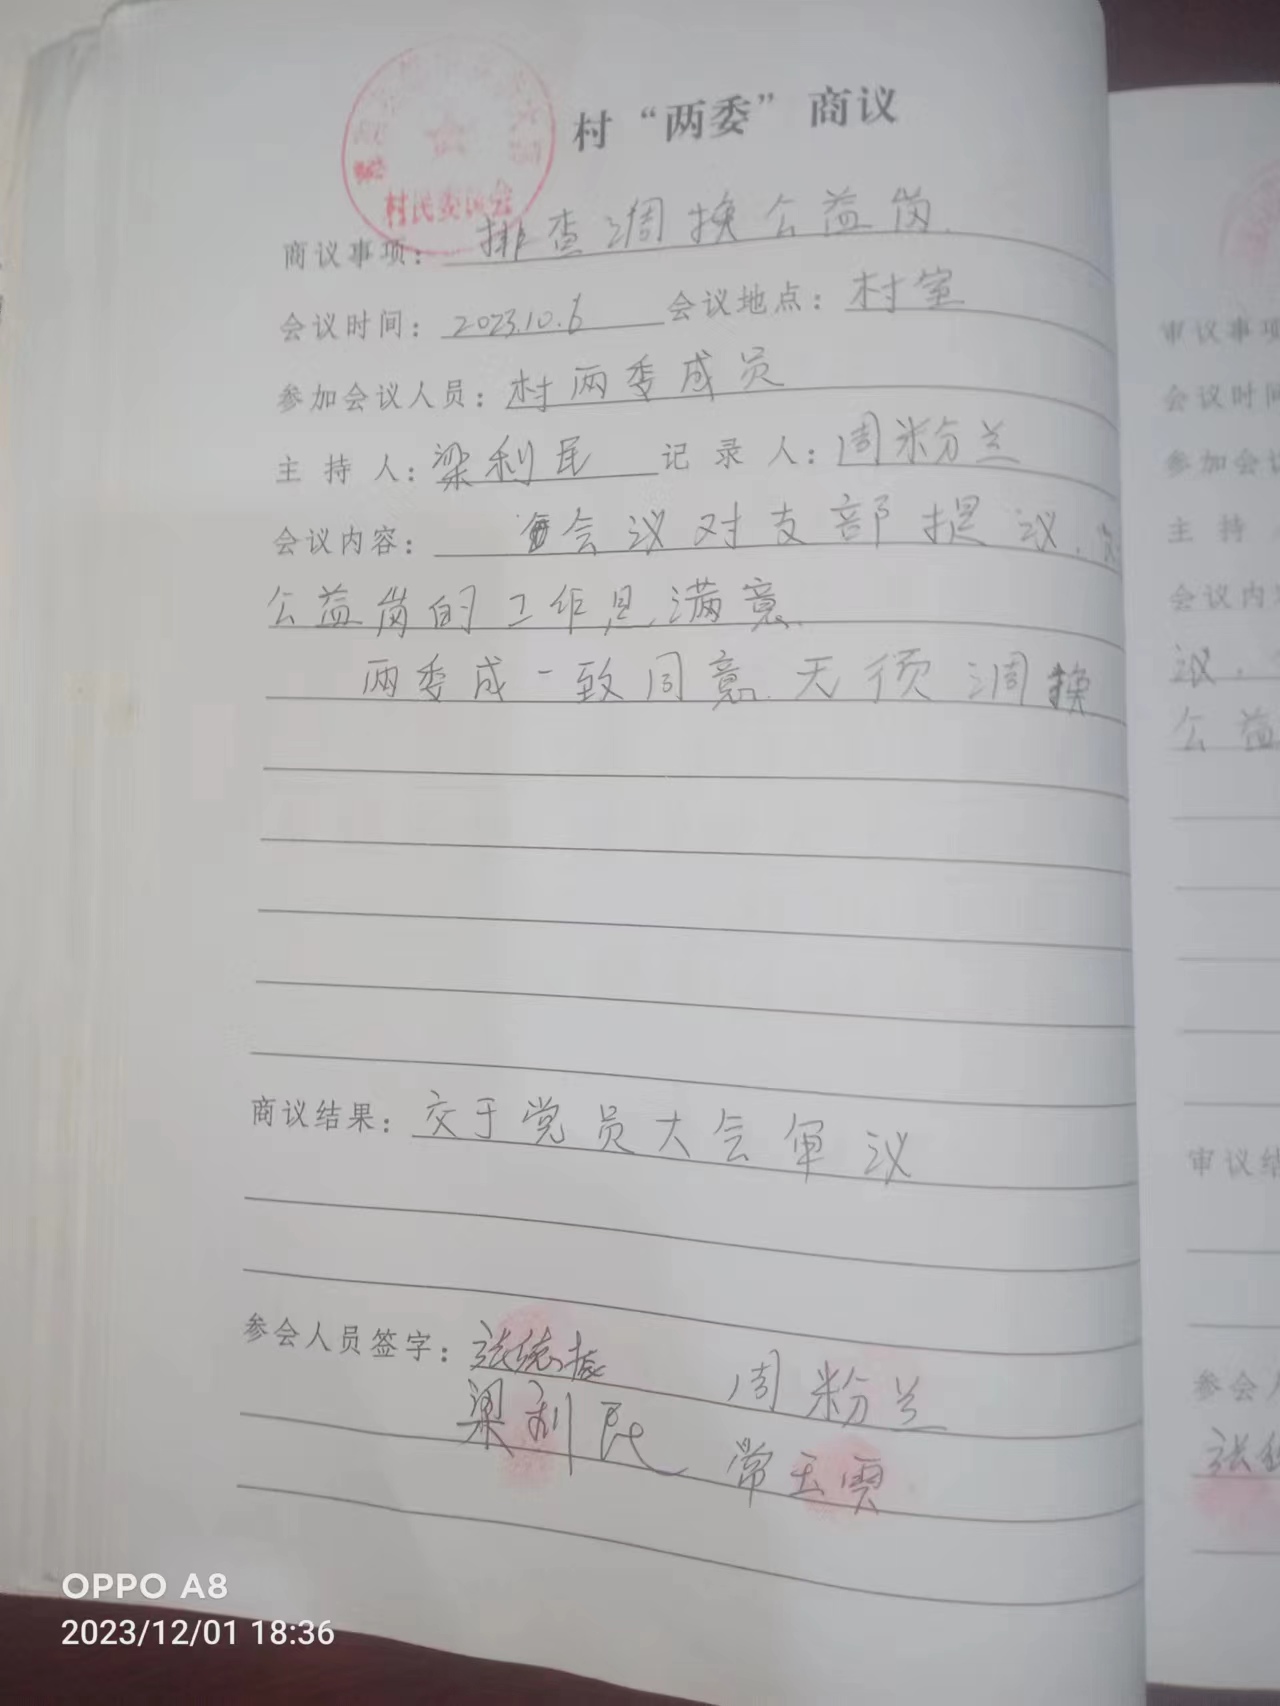 村“两委”商议
村民委员会
商议事项：排查调换公益岗.
会议时间：2023.10.6 会议地点：村室
参加会议人员：村两委成员
主持人：梁利民 记录人：周粉兰
会议内容：会议对支部提议,
公益岗的工作很满意.
两委成一致同意.无须调换
商议结果：交于党员大会审议
参会人员签字：张德振 周粉兰
梁利民 常玉雲
审议事项
会议时间
参加会议
主持
会议内容
议,
公益
审议结
参会人
张
OPPO A8
2023/12/01 18:36